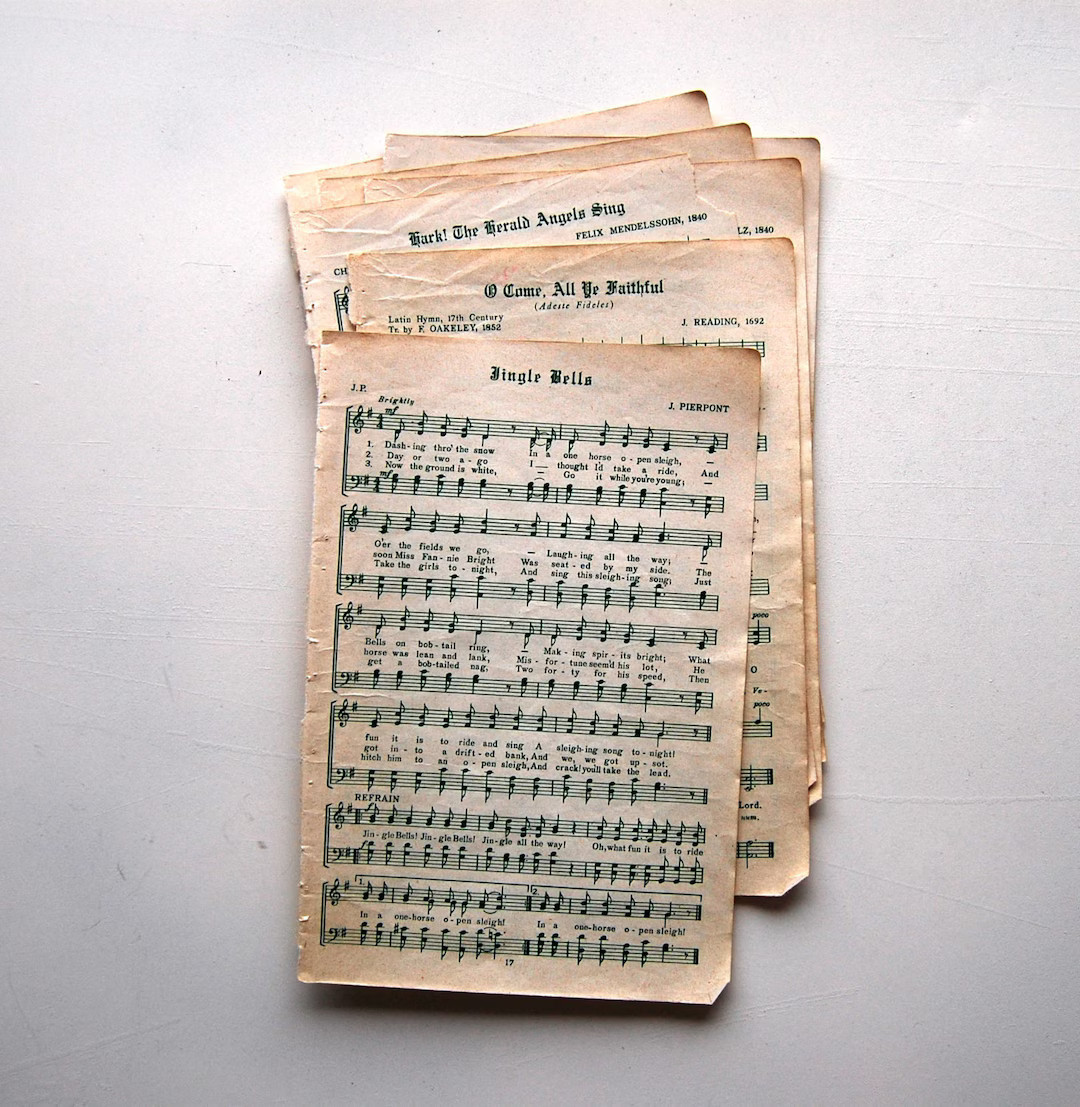 Hark! The Herald Angels Sing
FELIX MENDELSSOHN, 1840
LZ, 1840
CH
O Come, All Ye Faithful
(Adeste Fideles)
Latin Hymn, 17th Century
Tr. by F. OAKELEY, 1852
J. READING, 1692
Jingle Bells
J. P.
J. PIERPONT
Brightly
mf
1. Dash-ing thro' the snow In a one horse o-pen sleigh, —
2. Day or two a-go I — thought I'd take a ride, And
3. Now the ground is white, — Go it while you're young; —
mf
O'er the fields we go, — Laugh-ing all the way; The
soon Miss Fan-nie Bright Was seat-ed by my side. The
Take the girls to-night, And sing this sleigh-ing song; Just
Bells on bob-tail ring, — Mak-ing spir-its bright; What
horse was lean and lank, Mis-for-tune seem'd his lot, He
get a bob-tailed nag, Two for-ty for his speed, Then
fun it is to ride and sing A sleigh-ing song to-night!
got in-to a drift-ed bank, And we, we got up-sot.
hitch him to an o-pen sleigh, And crack! you'll take the lead.
REFRAIN
Jin-gle Bells! Jin-gle Bells! Jin-gle all the way! Oh, what fun it is to ride
f
1. 2.
In a one-horse o-pen sleigh! In a one-horse o-pen sleigh!
17
poco
O
Ve-
poco
Lord.